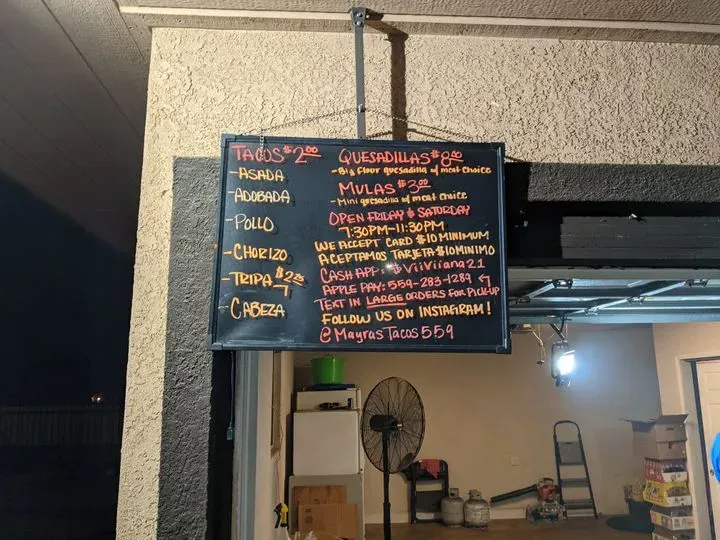 TACOS $2.00
-ASADA
-ADOBADA
-POLLO
-CHORIZO
-TRIPA $2.25
-CABEZA
QUESADILLAS $8.00
-Big flour quesadilla w/ meat choice
MULAS $3.00
-Mini quesadilla w/ meat choice
OPEN FRIDAY & SATURDAY
7:30PM-11:30PM
WE ACCEPT CARD $10 MINIMUM
ACEPTAMOS TARJETA $10 MINIMO
CASH APP: $ViiViiana21
APPLE PAY: 559-283-1289
TEXT IN LARGE ORDERS FOR PICK-UP
FOLLOW US ON INSTAGRAM!
@MayrasTacos559